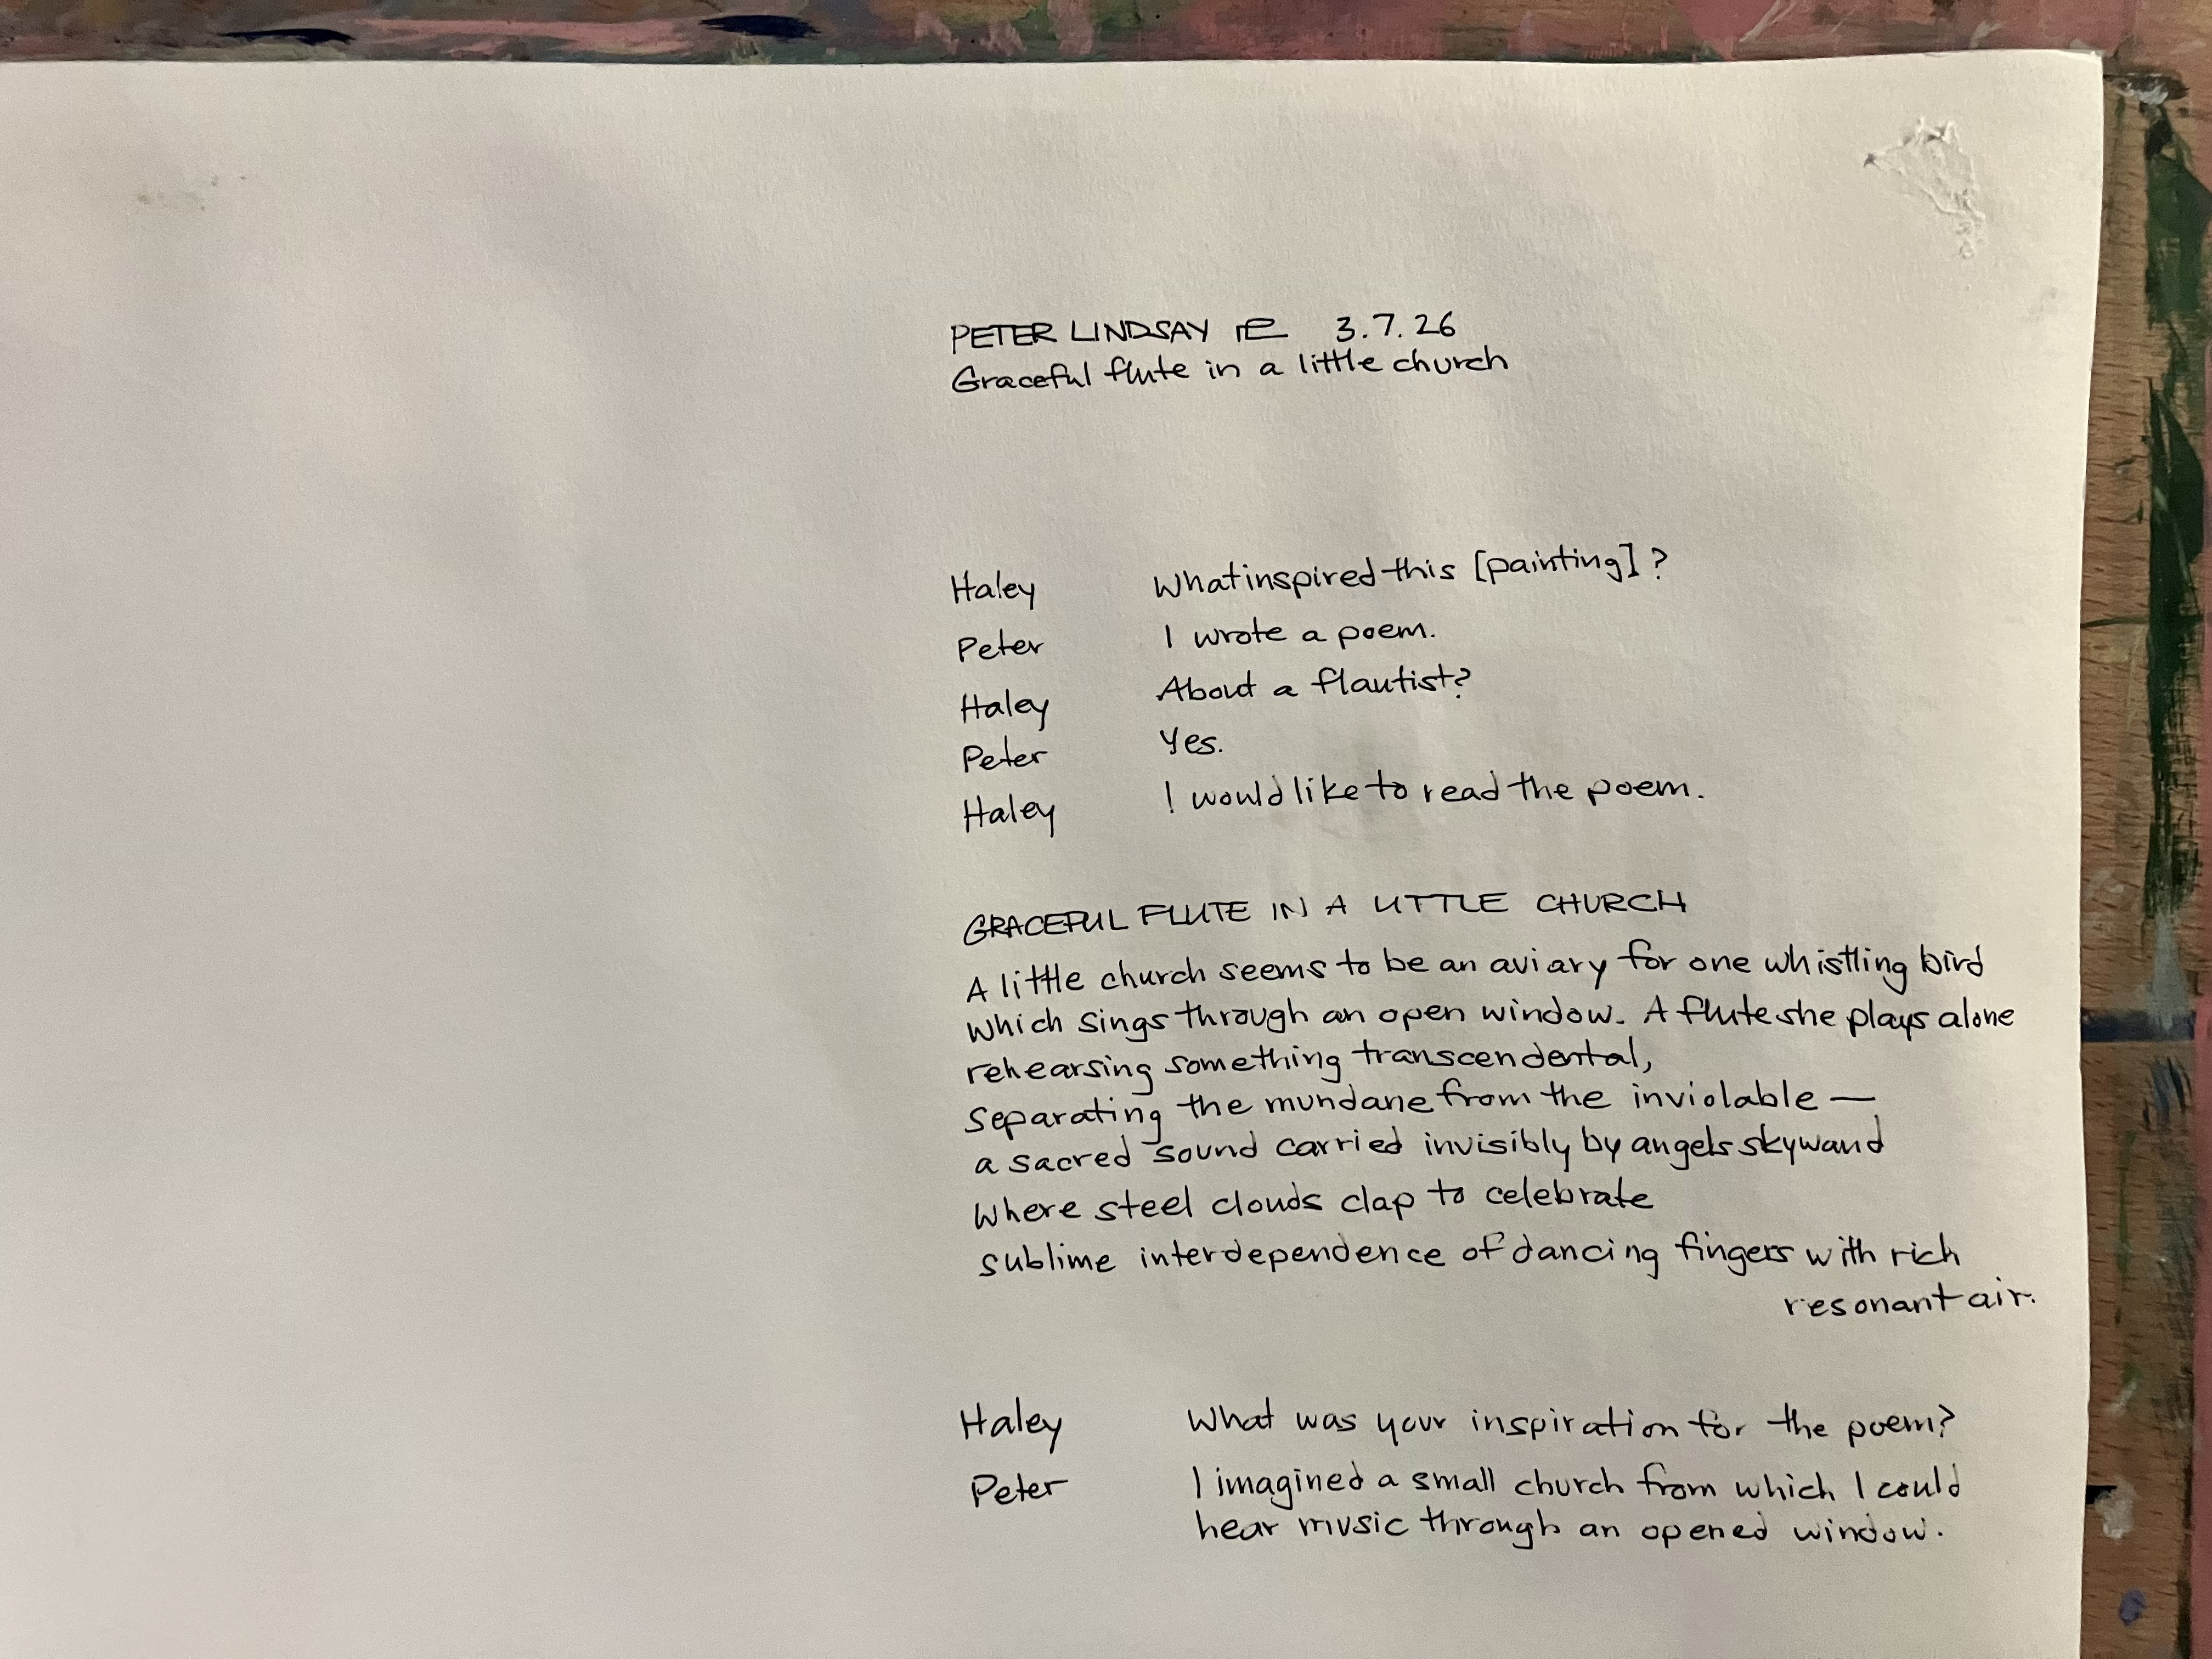 PETER LINDSAY 3.7.26
Graceful flute in a little church
Haley What inspired this [painting]?
Peter I wrote a poem.
Haley About a flautist?
Peter Yes.
Haley I would like to read the poem.
GRACEFUL FLUTE IN A LITTLE CHURCH
A little church seems to be an aviary for one whistling bird
which sings through an open window. A flute she plays alone
rehearsing something transcendental,
separating the mundane from the inviolable —
a sacred sound carried invisibly by angels skyward
where steel clouds clap to celebrate
sublime interdependence of dancing fingers with rich
resonant air.
Haley What was your inspiration for the poem?
Peter I imagined a small church from which I could
hear music through an opened window.